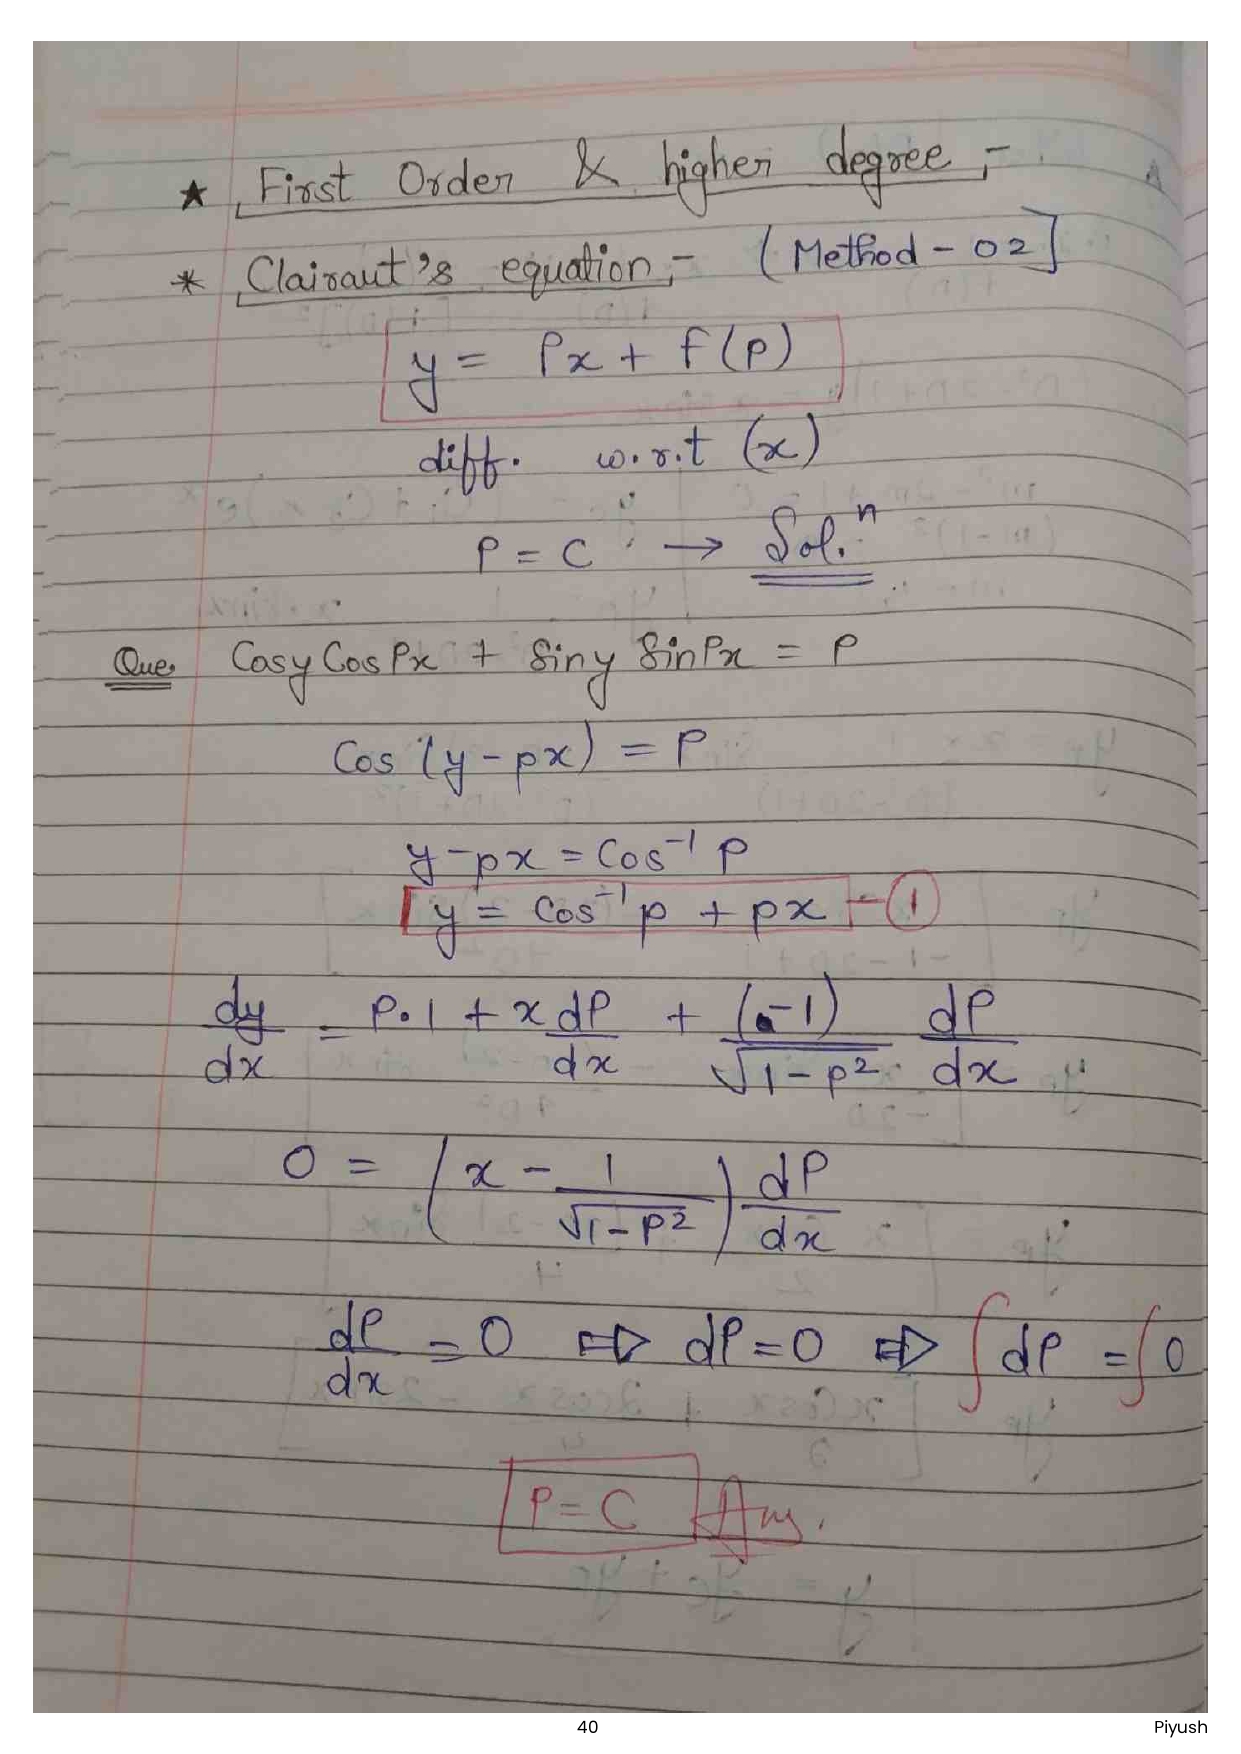 ★ First Order & higher degree :-
* Clairaut's equation :- [Method - 02]
y = Px + f(p)
diff. w.r.t (x)
P = C → Sol.ⁿ
Que. Cosy CosPx + Siny SinPx = P
Cos (y - px) = P
y - px = Cos⁻¹ p
y = Cos⁻¹ p + px — ①
dy/dx = P.1 + x dP/dx + (-1)/√1-p² dP/dx
0 = (x - 1/√1-p²) dP/dx
dP/dx = 0 ⇒ dP = 0 ⇒ ∫dP = ∫0
P = C Ans.
40
Piyush